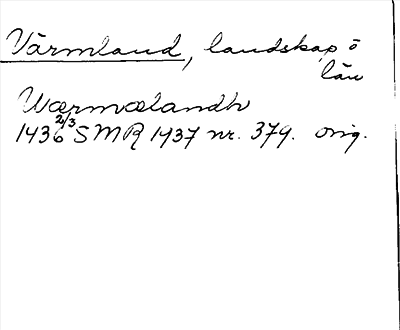 Värmland, landskap o
län
Wærmælandh
1436 2/3 SMR 1437 nr. 379. orig.